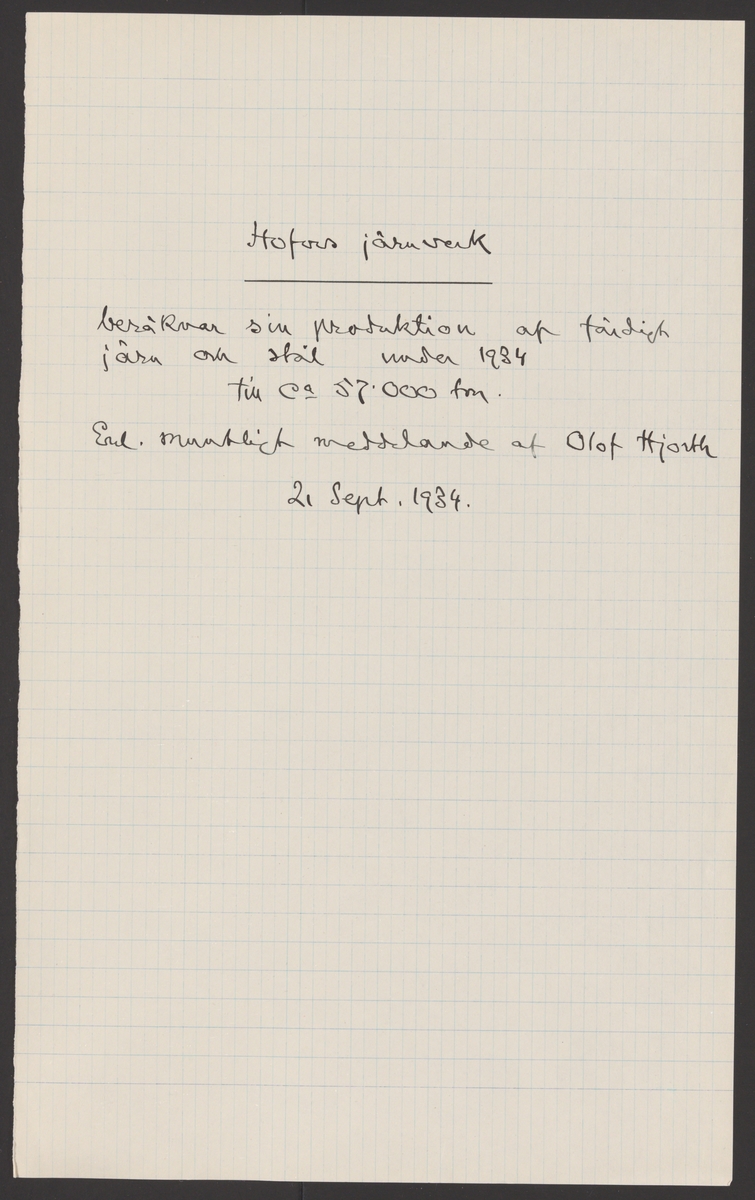 Hofors järnverk
beräknar sin produktion af färdigt
järn och stål under 1934
till ca 57.000 ton.
Enl. muntligt meddelande af Olof Hjorth
21 Sept. 1934.